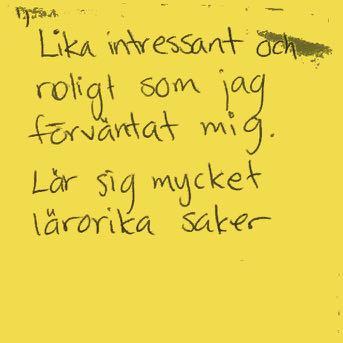 Lika intressant och
roligt som jag
förväntat mig.
Lär sig mycket
lärorika saker